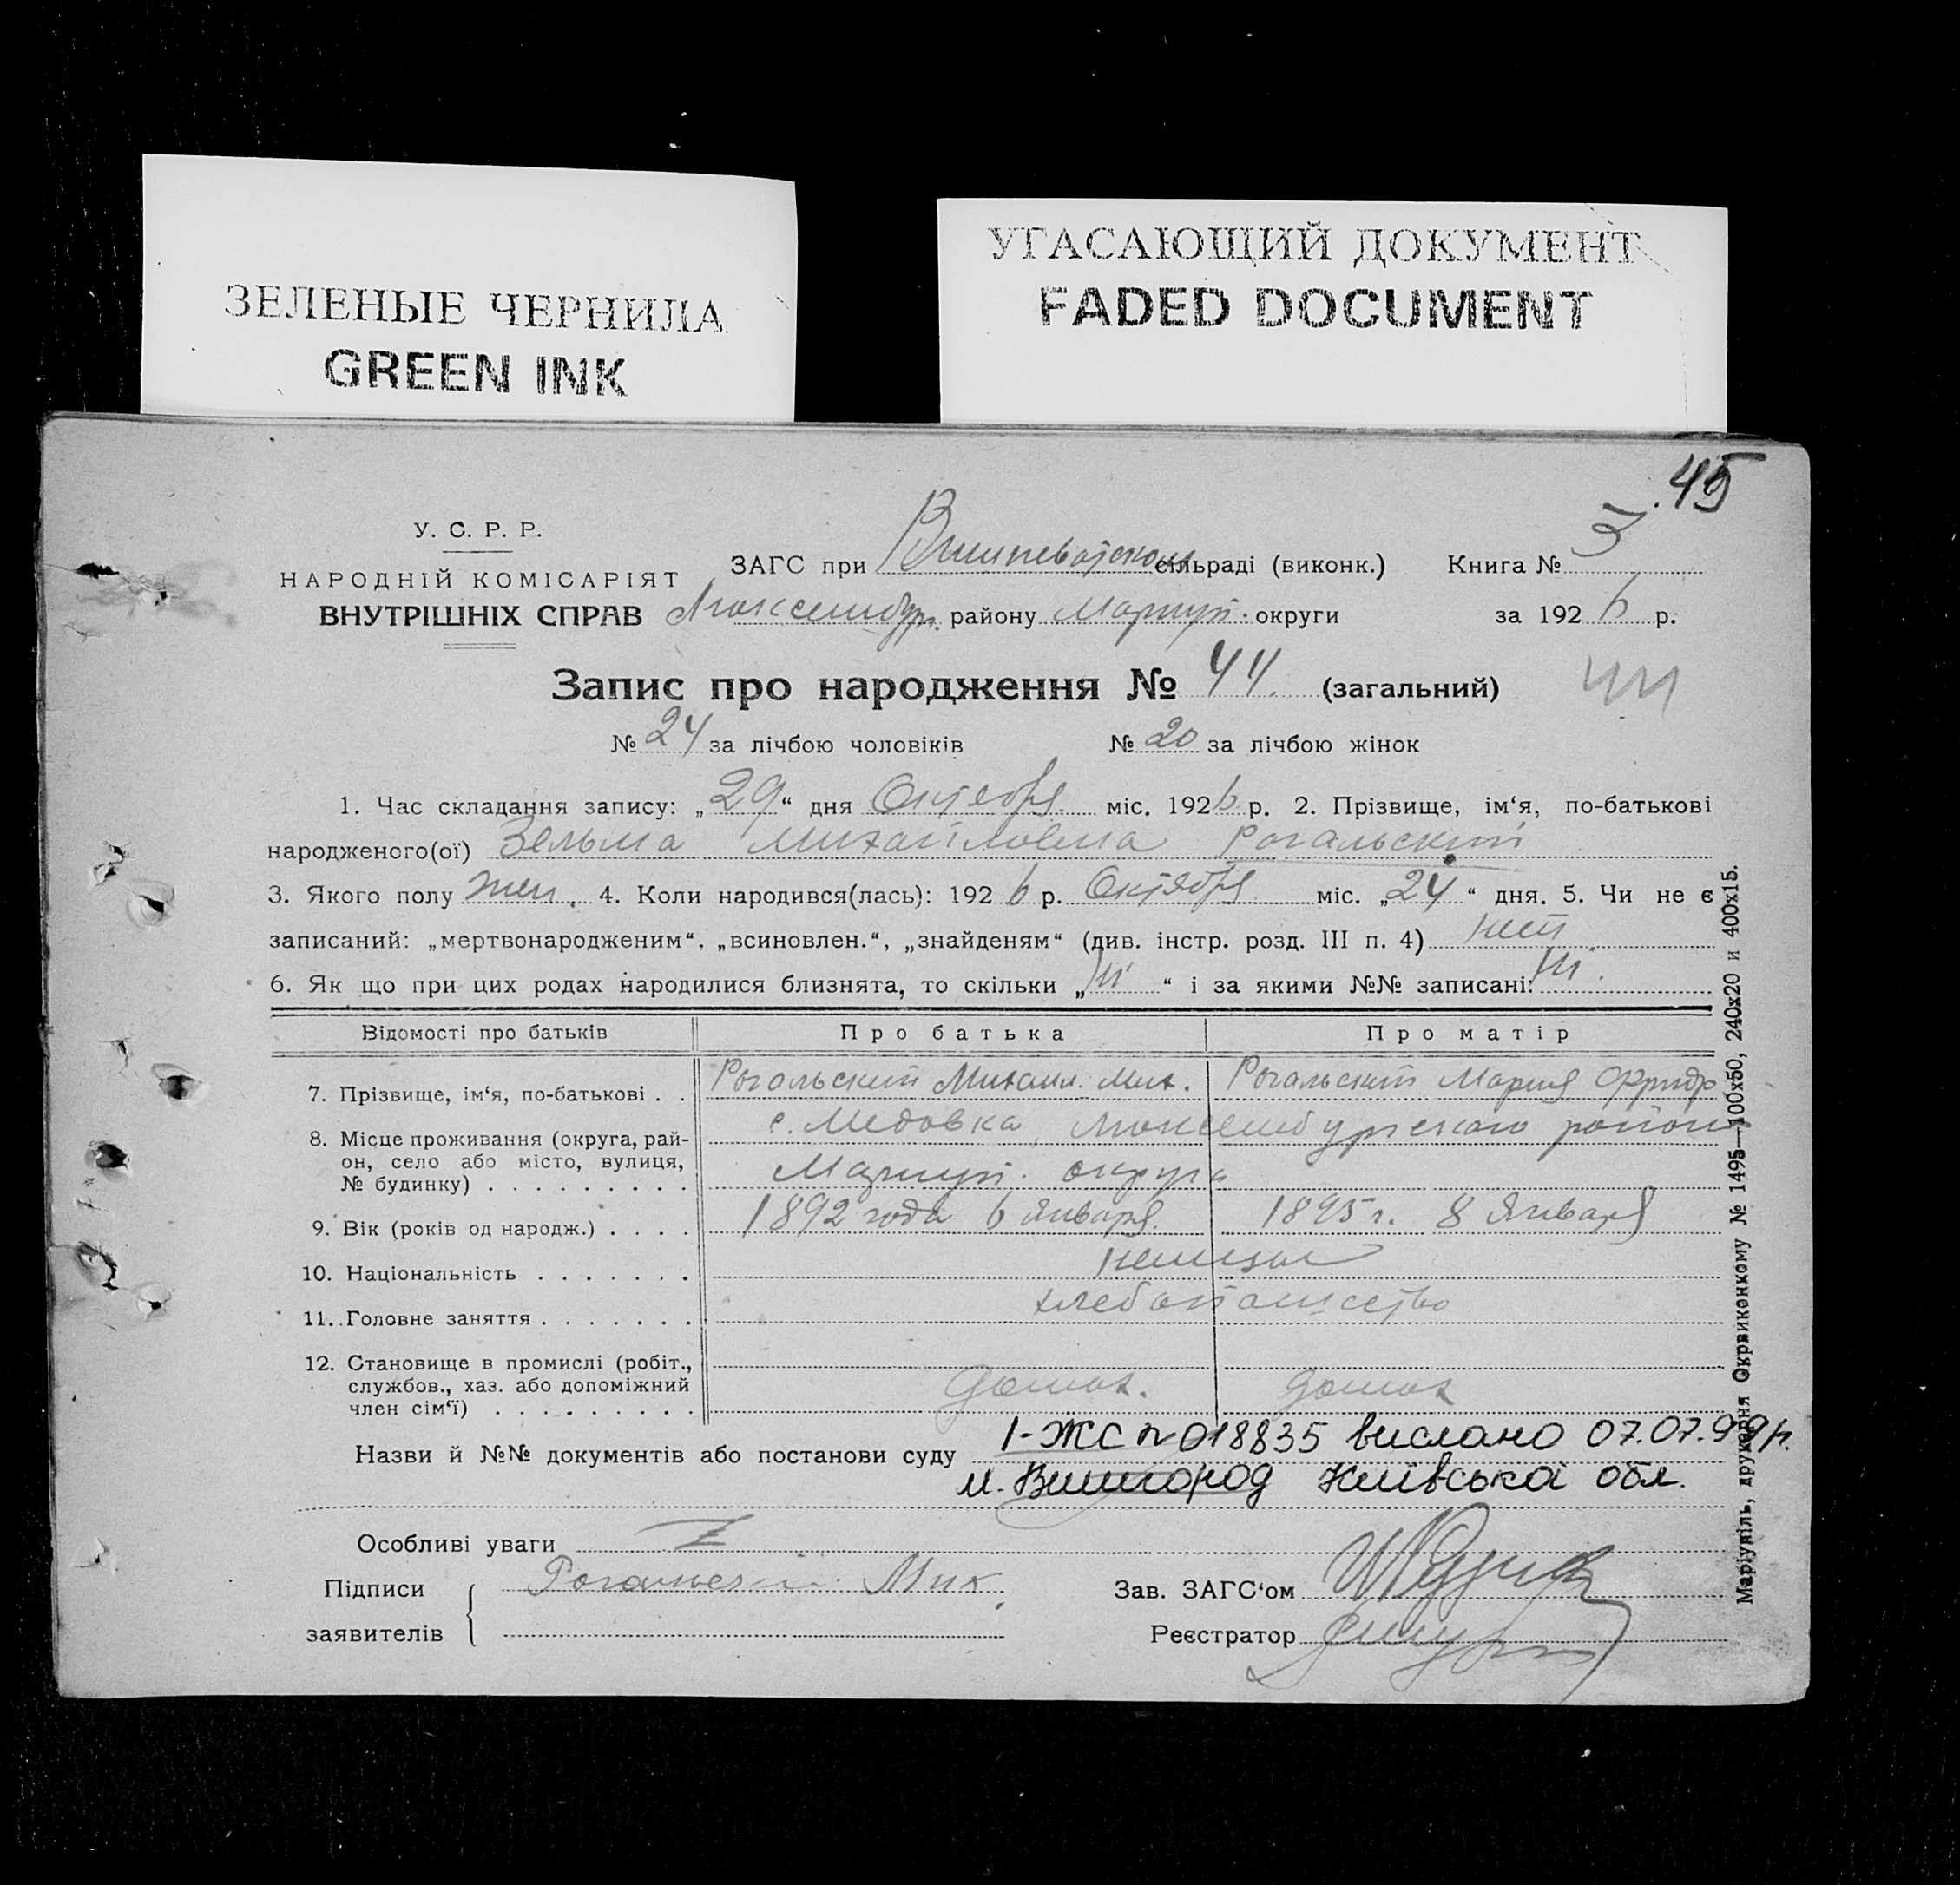 ЗЕЛЕНЫЕ ЧЕРНИЛА
GREEN INK
УГАСАЮЩИЙ ДОКУМЕНТ
FADED DOCUMENT
45
У. С. Р. Р.
НАРОДНІЙ КОМІСАРІЯТ
ВНУТРІШНІХ СПРАВ
ЗАГС при сільраді (виконк.) Книга № 3
Люксембург. району Мариуп. округи за 1926 р.
Запис про народження № 44. (загальний) 44
№ 24 за лічбою чоловіків № 20 за лічбою жінок
1. Час складання запису: „29“ дня Октября міс. 1926 р. 2. Прізвище, ім‘я, по-батькові
народженого(ої) Зельма Михайловна Рогальский
3. Якого полу жен. 4. Коли народився(лась): 1926 р. Октября міс. „24“ дня. 5. Чи не є
записаний: „мертвонародженим“, „всиновлен.“, „знайденям“ (див. інстр. розд. III п. 4) нет
6. Як що при цих родах народилися близнята, то скільки „ “ і за якими №№ записані:
Відомості про батьків Про батька Про матір
7. Прізвище, ім‘я, по-батькові . . Рогальский Михаил. Мих. Рогальский Мария Фридр
8. Місце проживання (округа, рай- с. Медовка Люксембургского район
он, село або місто, вулиця,
№ будинку) . . . . . . . . . Мариуп. округа
9. Вік (років од народж.) . . . . 1892 года 6 января. 1895 г. 8 Января
10. Національність . . . . . . . немцы
11. Головне заняття . . . . . . . хлебопашество
12. Становище в промислі (робіт.,
службов., хаз. або допоміжний домох. домох
член сім‘ї) . . . . . . . . .
Назви й №№ документів або постанови суду І-ЖС № 018835 вислано 07.07.99р.
м. Вишгород Київська обл.
Особливі уваги Z
Підписи Рогальский Мих.
заявителів
Зав. ЗАГС‘ом
Реєстратор
Маріупіль, друкарня Окрвиконкому № 1495—100х50, 240х20 и 400х15.